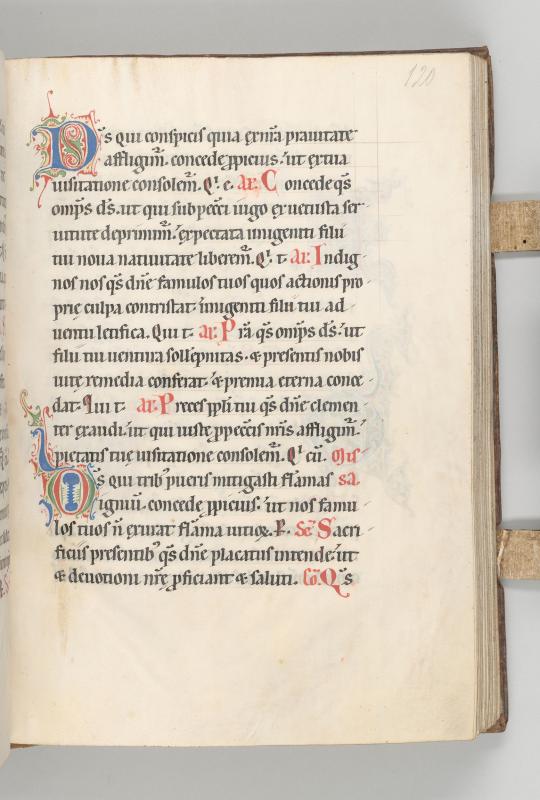 120
Ds̄ qui conspicis quia ex nr̄a prauitate
affligim̄. concede ꝓpicius. ut ex tua
uisitatione consolem̄. Q͛. e. aƚ. Concede qs̄
om̄ps ds̄. ut qui sub pecc̄i iugo ex uetusta ser
uitute deprimim̄. expectata unigeniti filii
tui noua natiuitate liberem̄. Q͛. t. aƚ. Indig
nos nos qs̄ dn̄e famulos tuos quos actionis pro
prię culpa contristat. unigeniti filii tui ad
uentu letifica. Qui t. aƚ. Pr̄a qs̄ om̄ps ds̄. ut
filii tui uentura sollepnitas. & presentis nobis
uitę remedia conferat. & premia eterna conce
dat. Qui t. aƚ. Preces ppl̄i tui qs̄ dn̄e clemen
ter exaudi. ut qui iuste ꝓ pecc̄is nr̄is affligim̄.
pietatis tuę uisitatione consolem̄. Q͛ cū.
Ds̄ qui trib' pueris mitigasti flāmas sa.
ignium. concede ꝓpicius. ut nos famu
los tuos n̄ exurat flāma uitioꝝ. P. Sec̄ Sacri
ficiis presentib' qs̄ dn̄e placatus intende. ut
& deuotioni nr̄ę ꝓficiant & saluti. Cō. Qs̄